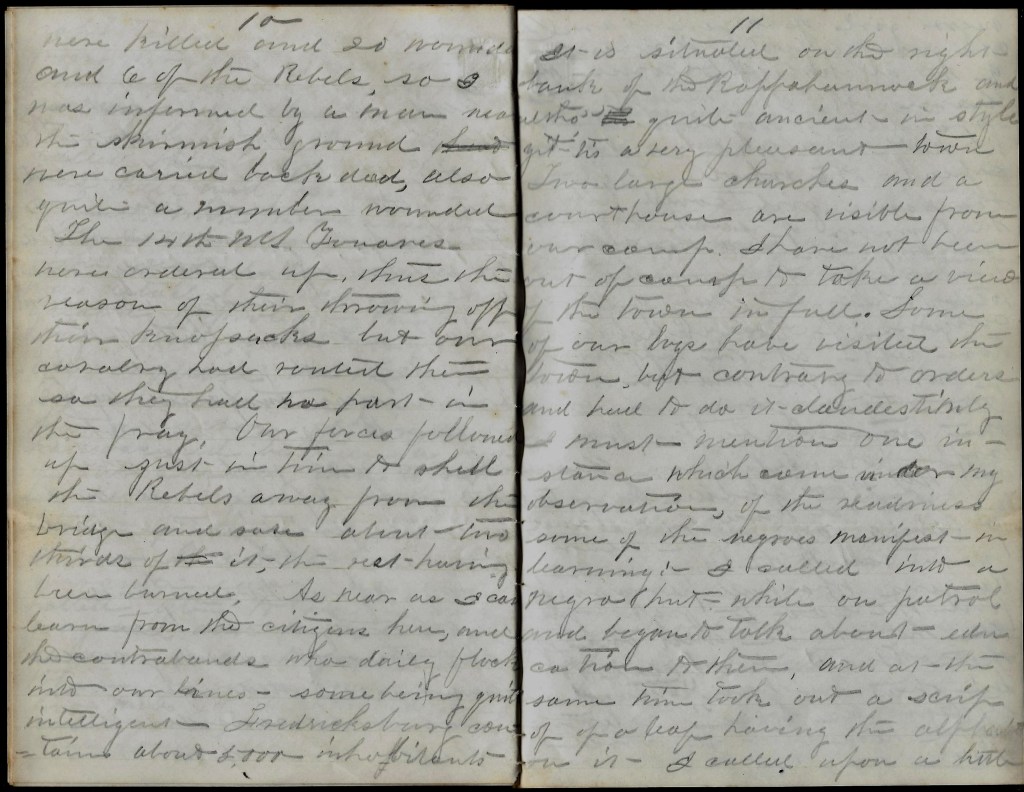 10
were killed and 20 wounded
and 6 of the Rebels, so I
was informed by a man near
the skirmish ground
were caried back dead, also
quite a number wounded
The 14th Zouaves
were ordered up, thus the
reason of their throwing off
their knapsacks but our
cavalry had routed them
so they had no part in
the fray. Our forces followed
up just in time to shell
the Rebels away from the
bridge and save about two
thirds of it, the rest having
been burned. As near as I can
learn from the citizens here, and
the contrabands who daily flock
into our lines - some being quite
intelligent - Fredricksburg con
=tains about 5,000 inhabitants
11
It is situated on the right
bank of the Rappahannock and
altho quite ancient in style
yet tis a very pleasant town
Two large churches and a
courthouse are visible from
our camp. I have not been
out of camp to take a view
of the town in full. Some
of our boys have visited the
town, but contrary to orders
and had to do it clandestinly
I must mention one in-
stance which came under my
observation, of the readiness
some of the negroes manifest in
learning:- I called into a
negro hut while on patrol
and began to talk about edu
cation to them, and at the
same time took out a scrip
of of a leaf having the alphabet
on it - I called upon a little